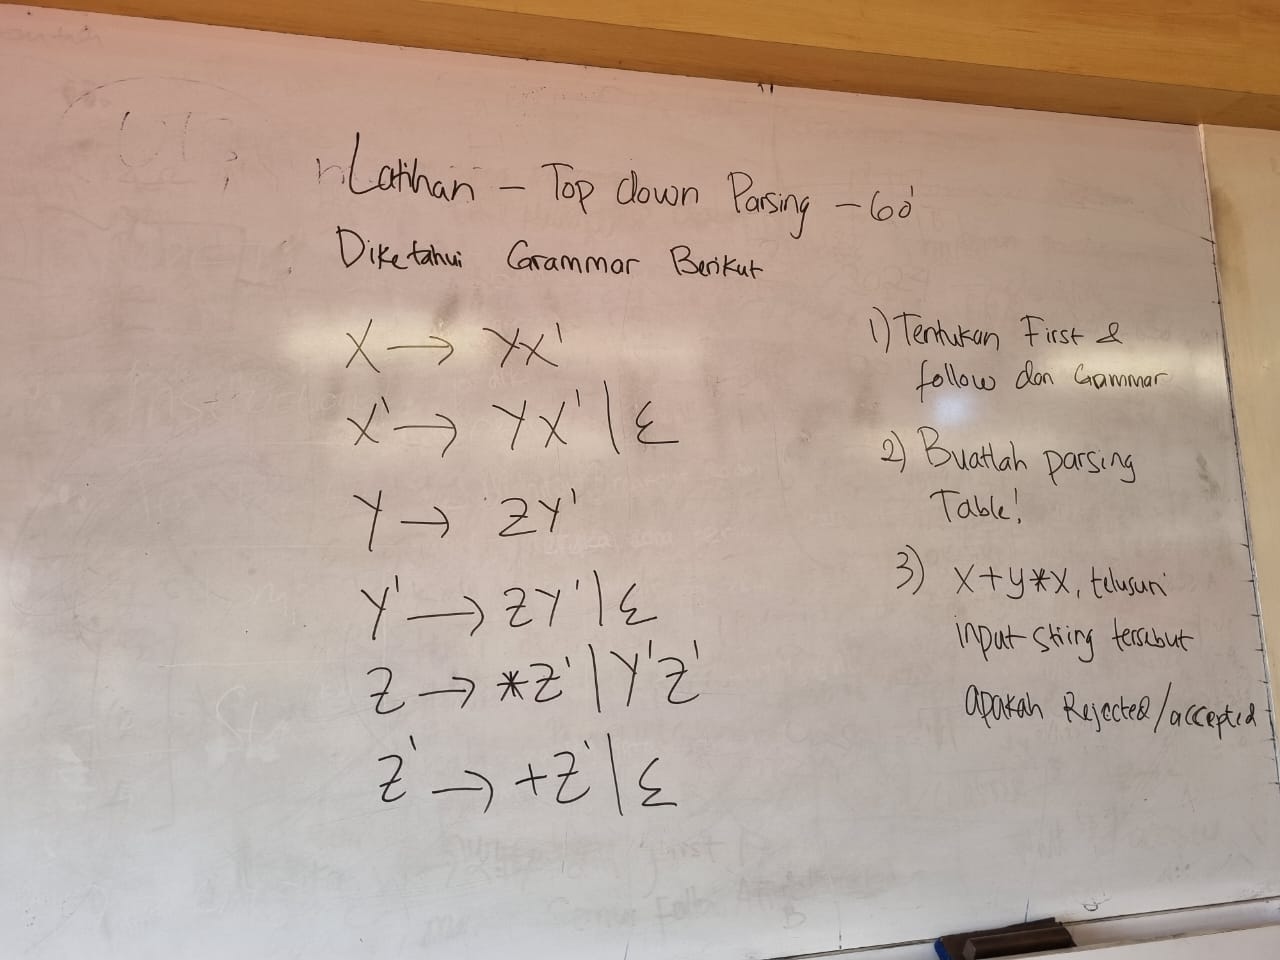 Latihan - Top down Parsing - 60'
Diketahui Grammar Berikut
X → YX'
X' → YX' | ε
Y → ZY'
Y' → ZY' | ε
Z → *Z' | Y'Z'
Z' → +Z' | ε
1) Tentukan First &
follow dan Grammar
2) Buatlah parsing
Table!
3) X+y*x, telusuri
input string tersebut
apakah Rejected/accepted